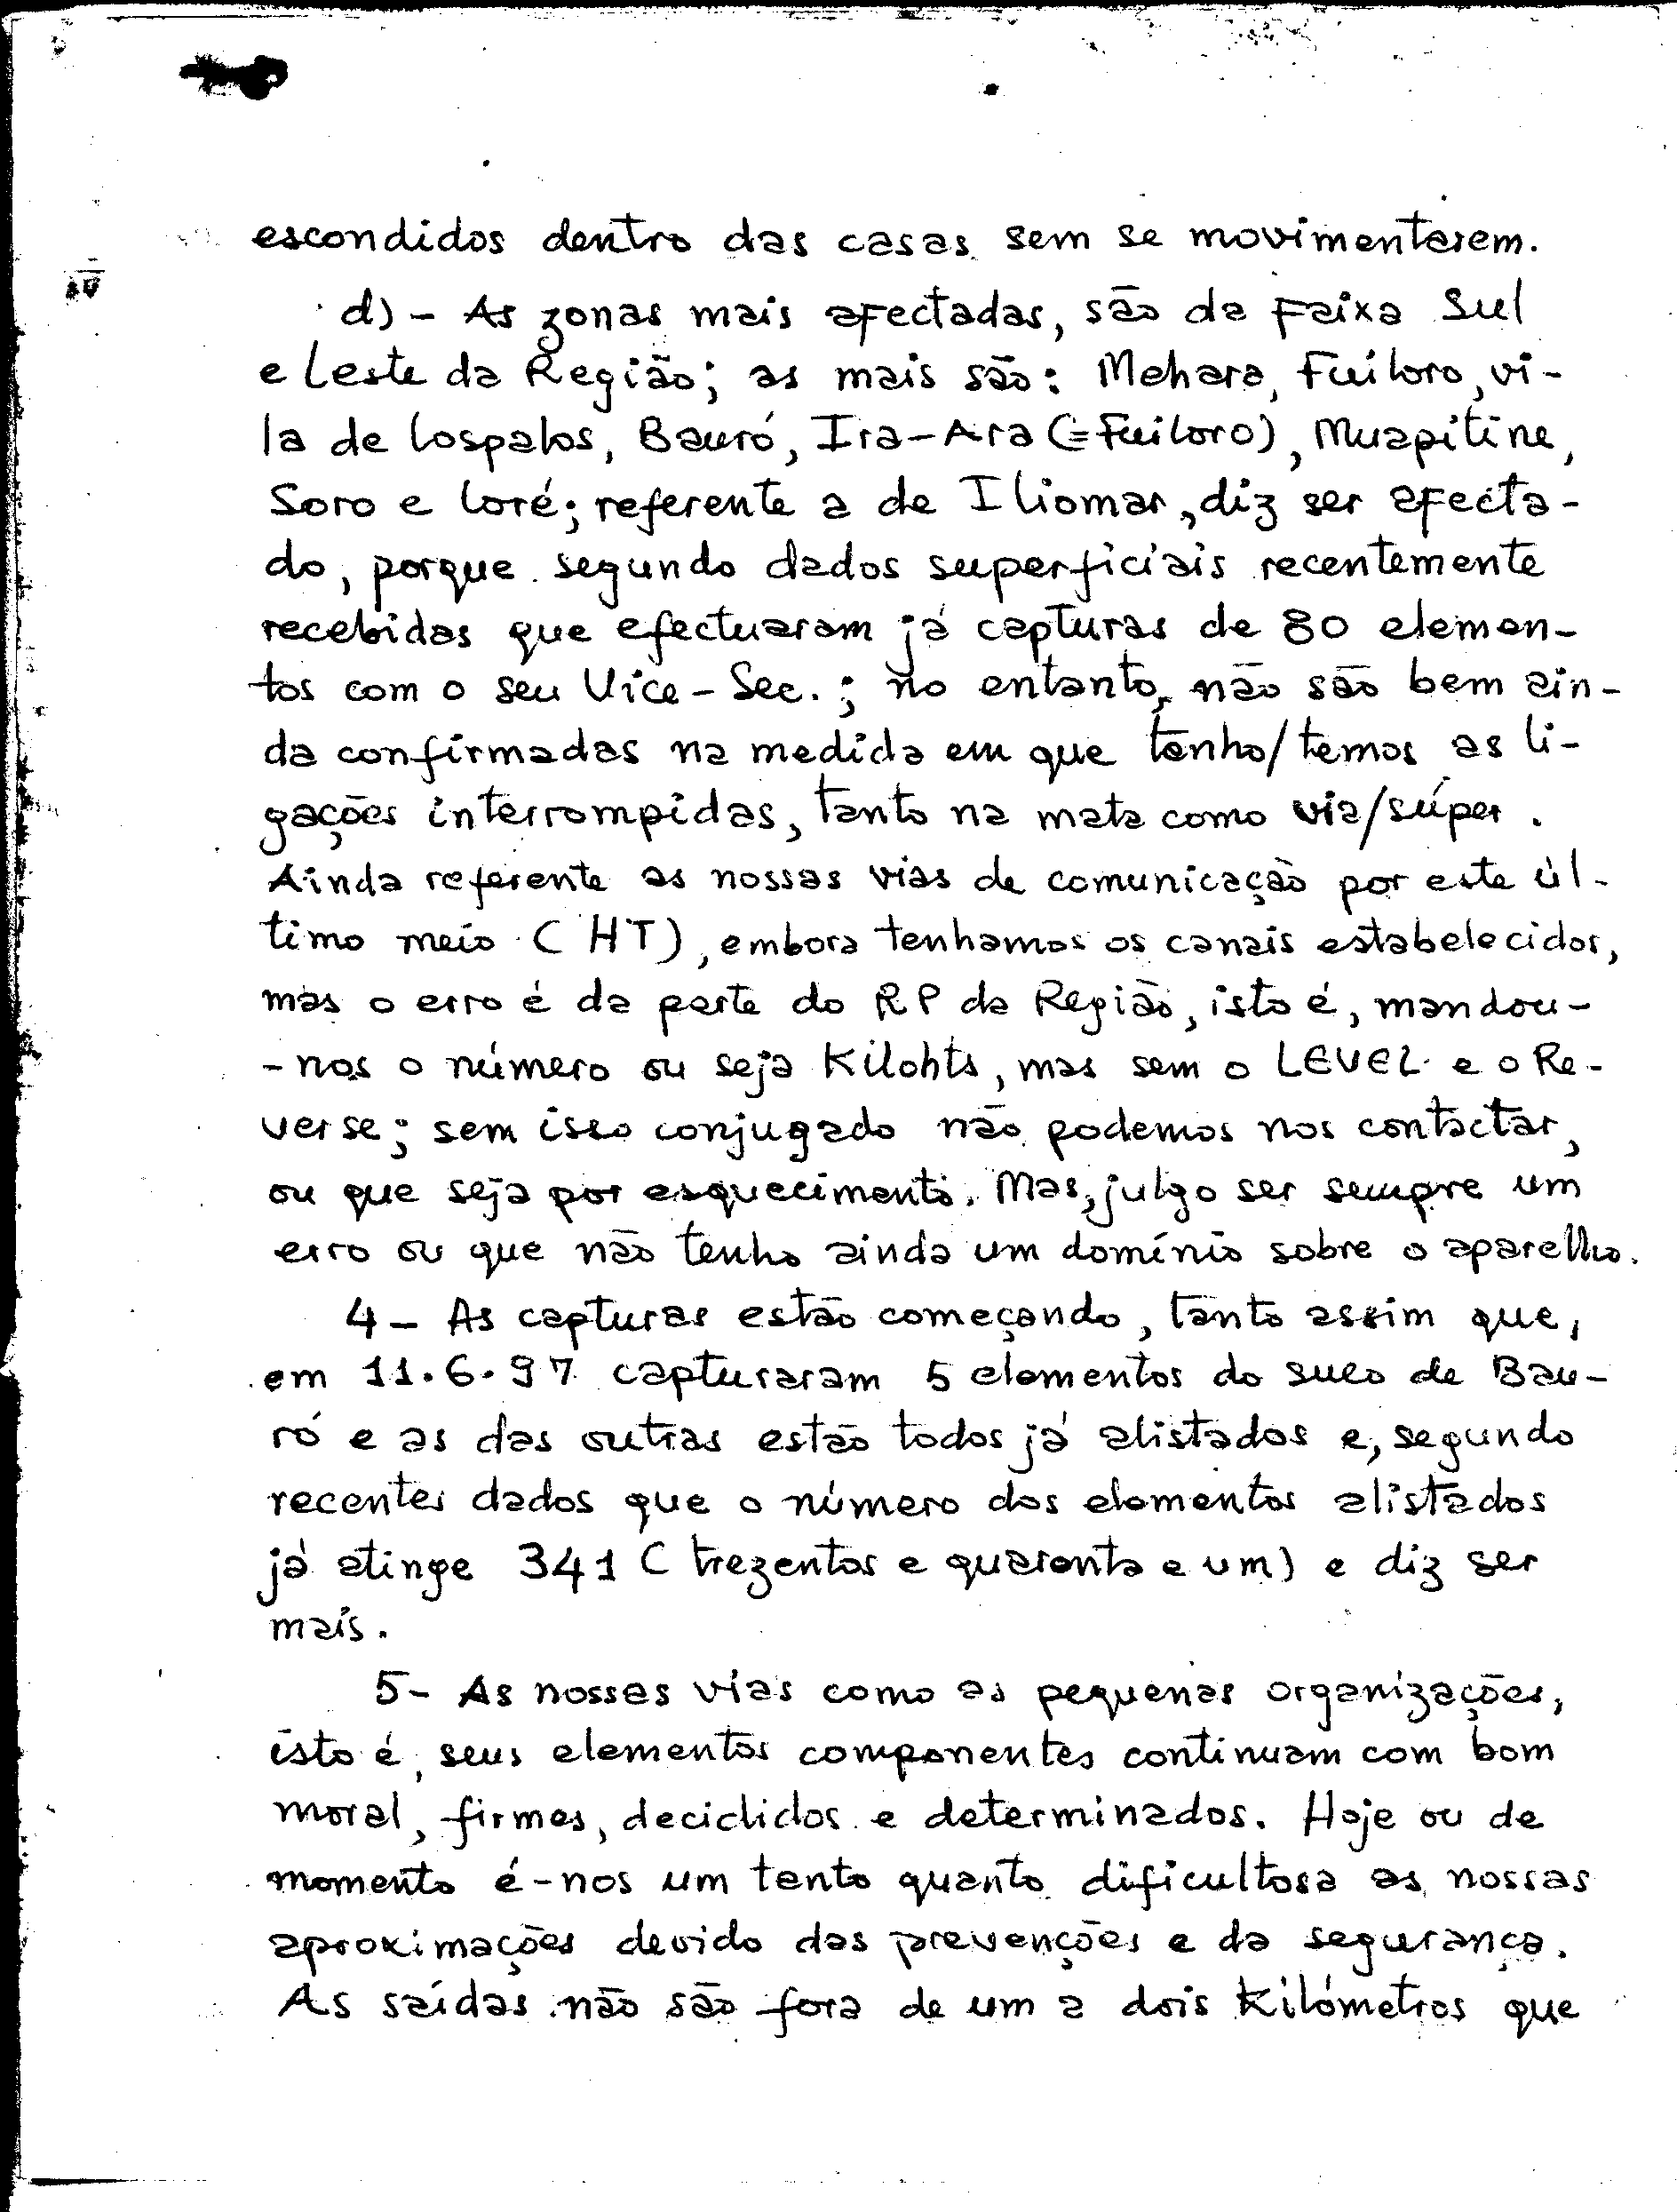 escondidos dentro das casas sem se movimentarem.
d) - As zonas mais afectadas, são da Faixa Sul
e Leste da Região; as mais são: Mehara, Fuiloro, vi-
la de Lospalos, Bauró, Ira-Ara (=Fuiloro), Muapitine,
Soro e Loré; referente a de Iliomar, diz ser afecta-
do, porque segundo dados superficiais recentemente
recebidas que efectuaram já capturas de 80 elemen-
tos com o seu Vice-Sec.; no entanto, não são bem ain-
da confirmadas na medida em que tenho/temos as li-
gações interrompidas, tanto na mata como via/súper.
Ainda referente as nossas vias de comunicação por este úl-
timo meio (HT), embora tenhamos os canais estabelecidos,
mas o erro é da parte do RP da Região, isto é, mandou-
-nos o número ou seja Kilohts, mas sem o LEVEL e o Re-
verse; sem isso conjugado não podemos nos contactar,
ou que seja por esquecimento. Mas, julgo ser sempre um
erro ou que não tenho ainda um domínio sobre o aparelho.
4 - As capturas estão começando, tanto assim que,
em 11.6.97 capturaram 5 elementos do suco de Bau-
ró e as das outras estão todos já alistados e, segundo
recentes dados que o número dos elementos alistados
já atinge 341 (trezentos e quarenta e um) e diz ser
mais.
5- As nossas vias como as pequenas organizações,
isto é, seus elementos componentes continuam com bom
moral, firmes, decididos e determinados. Hoje ou de
momento é-nos um tanto quanto dificultosa as nossas
aproximações devido das prevenções e da segurança.
As saídas não são fora de um a dois Kilómetros que